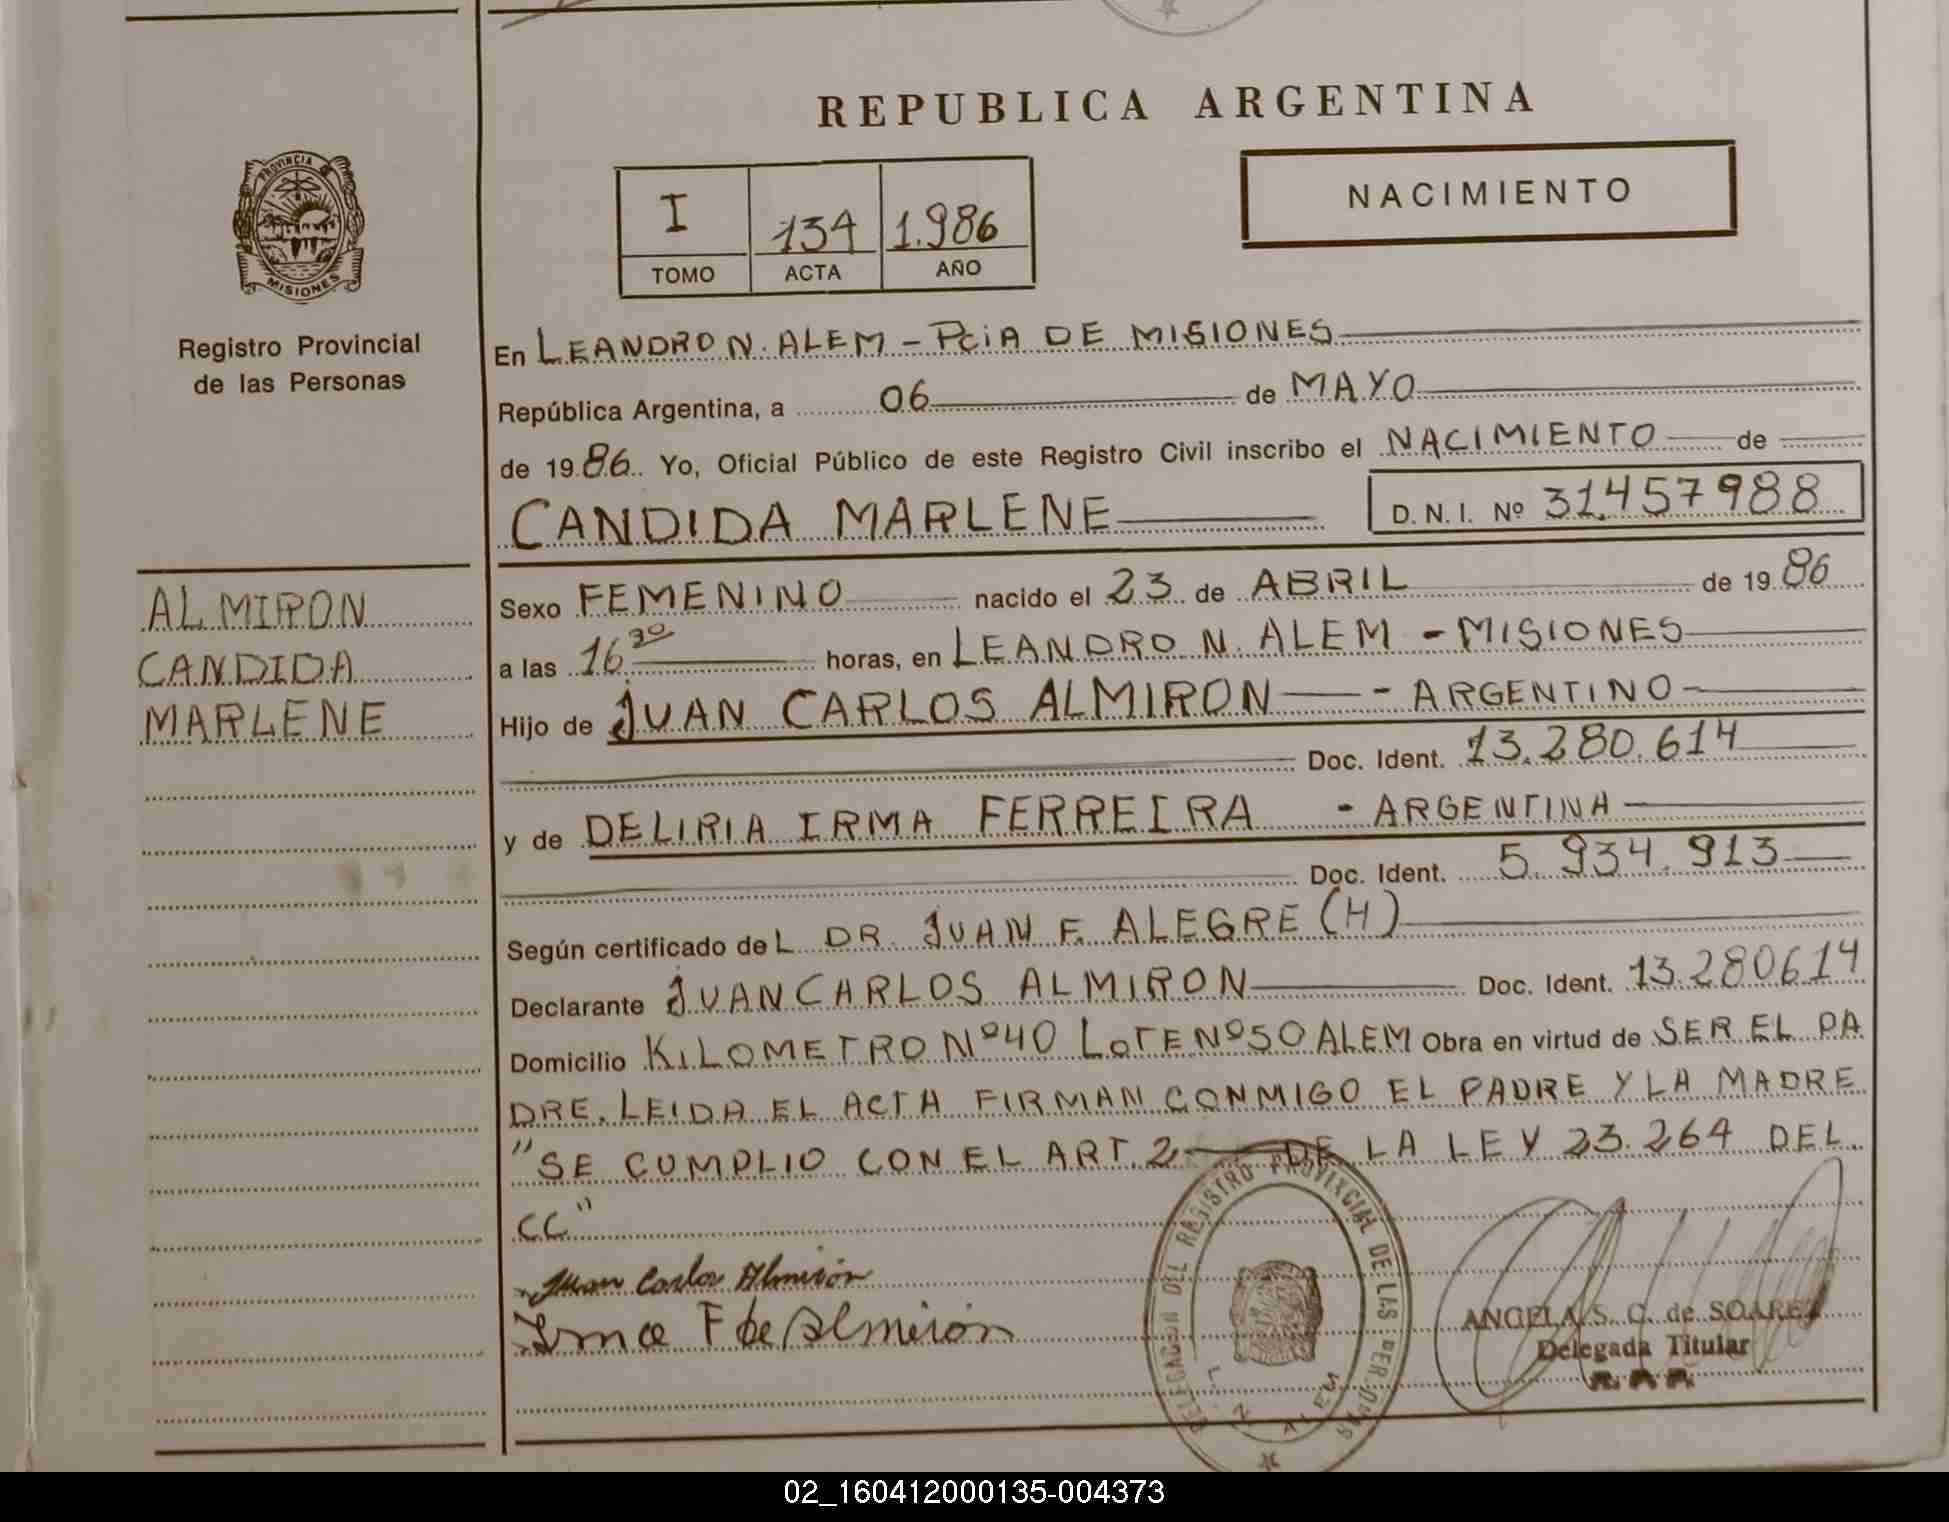 REPUBLICA ARGENTINA
PROVINCIA DE
MISIONES
Registro Provincial
de las Personas
I 134 1.986
TOMO ACTA AÑO
NACIMIENTO
En LEANDRO N. ALEM - PciA DE MISIONES
República Argentina, a 06 de MAYO
de 1986. Yo, Oficial Público de este Registro Civil inscribo el NACIMIENTO de
CANDIDA MARLENE D.N.I. Nº 31.457988
ALMIRON
CANDIDA
MARLENE
Sexo FEMENINO nacido el 23 de ABRIL de 1986
a las 16 30 horas, en LEANDRO N. ALEM - MISIONES
Hijo de JUAN CARLOS ALMIRON - ARGENTINO -
Doc. Ident. 13.280.614
y de DELIRIA IRMA FERREIRA - ARGENTINA
Doc. Ident. 5.934.913
Según certificado deL DR. JUAN F. ALEGRE (H)
Declarante JUAN CARLOS ALMIRON Doc. Ident. 13.280614
Domicilio KILOMETRO Nº40 LOTE Nº50 ALEM Obra en virtud de SER EL PA
DRE. LEIDA EL ACTA FIRMAN CONMIGO EL PADRE Y LA MADRE
"SE CUMPLIO CON EL ART. 2 DE LA LEY 23.264 DEL
CC"
Juan Carlos Almirón
Irma F de Almirón
DELEGACION DEL REGISTRO PROVINCIAL DE LAS PERSONAS
L. N. ALEM
ANGELA S. C. de SOAREZ
Delegada Titular
02_160412000135-004373